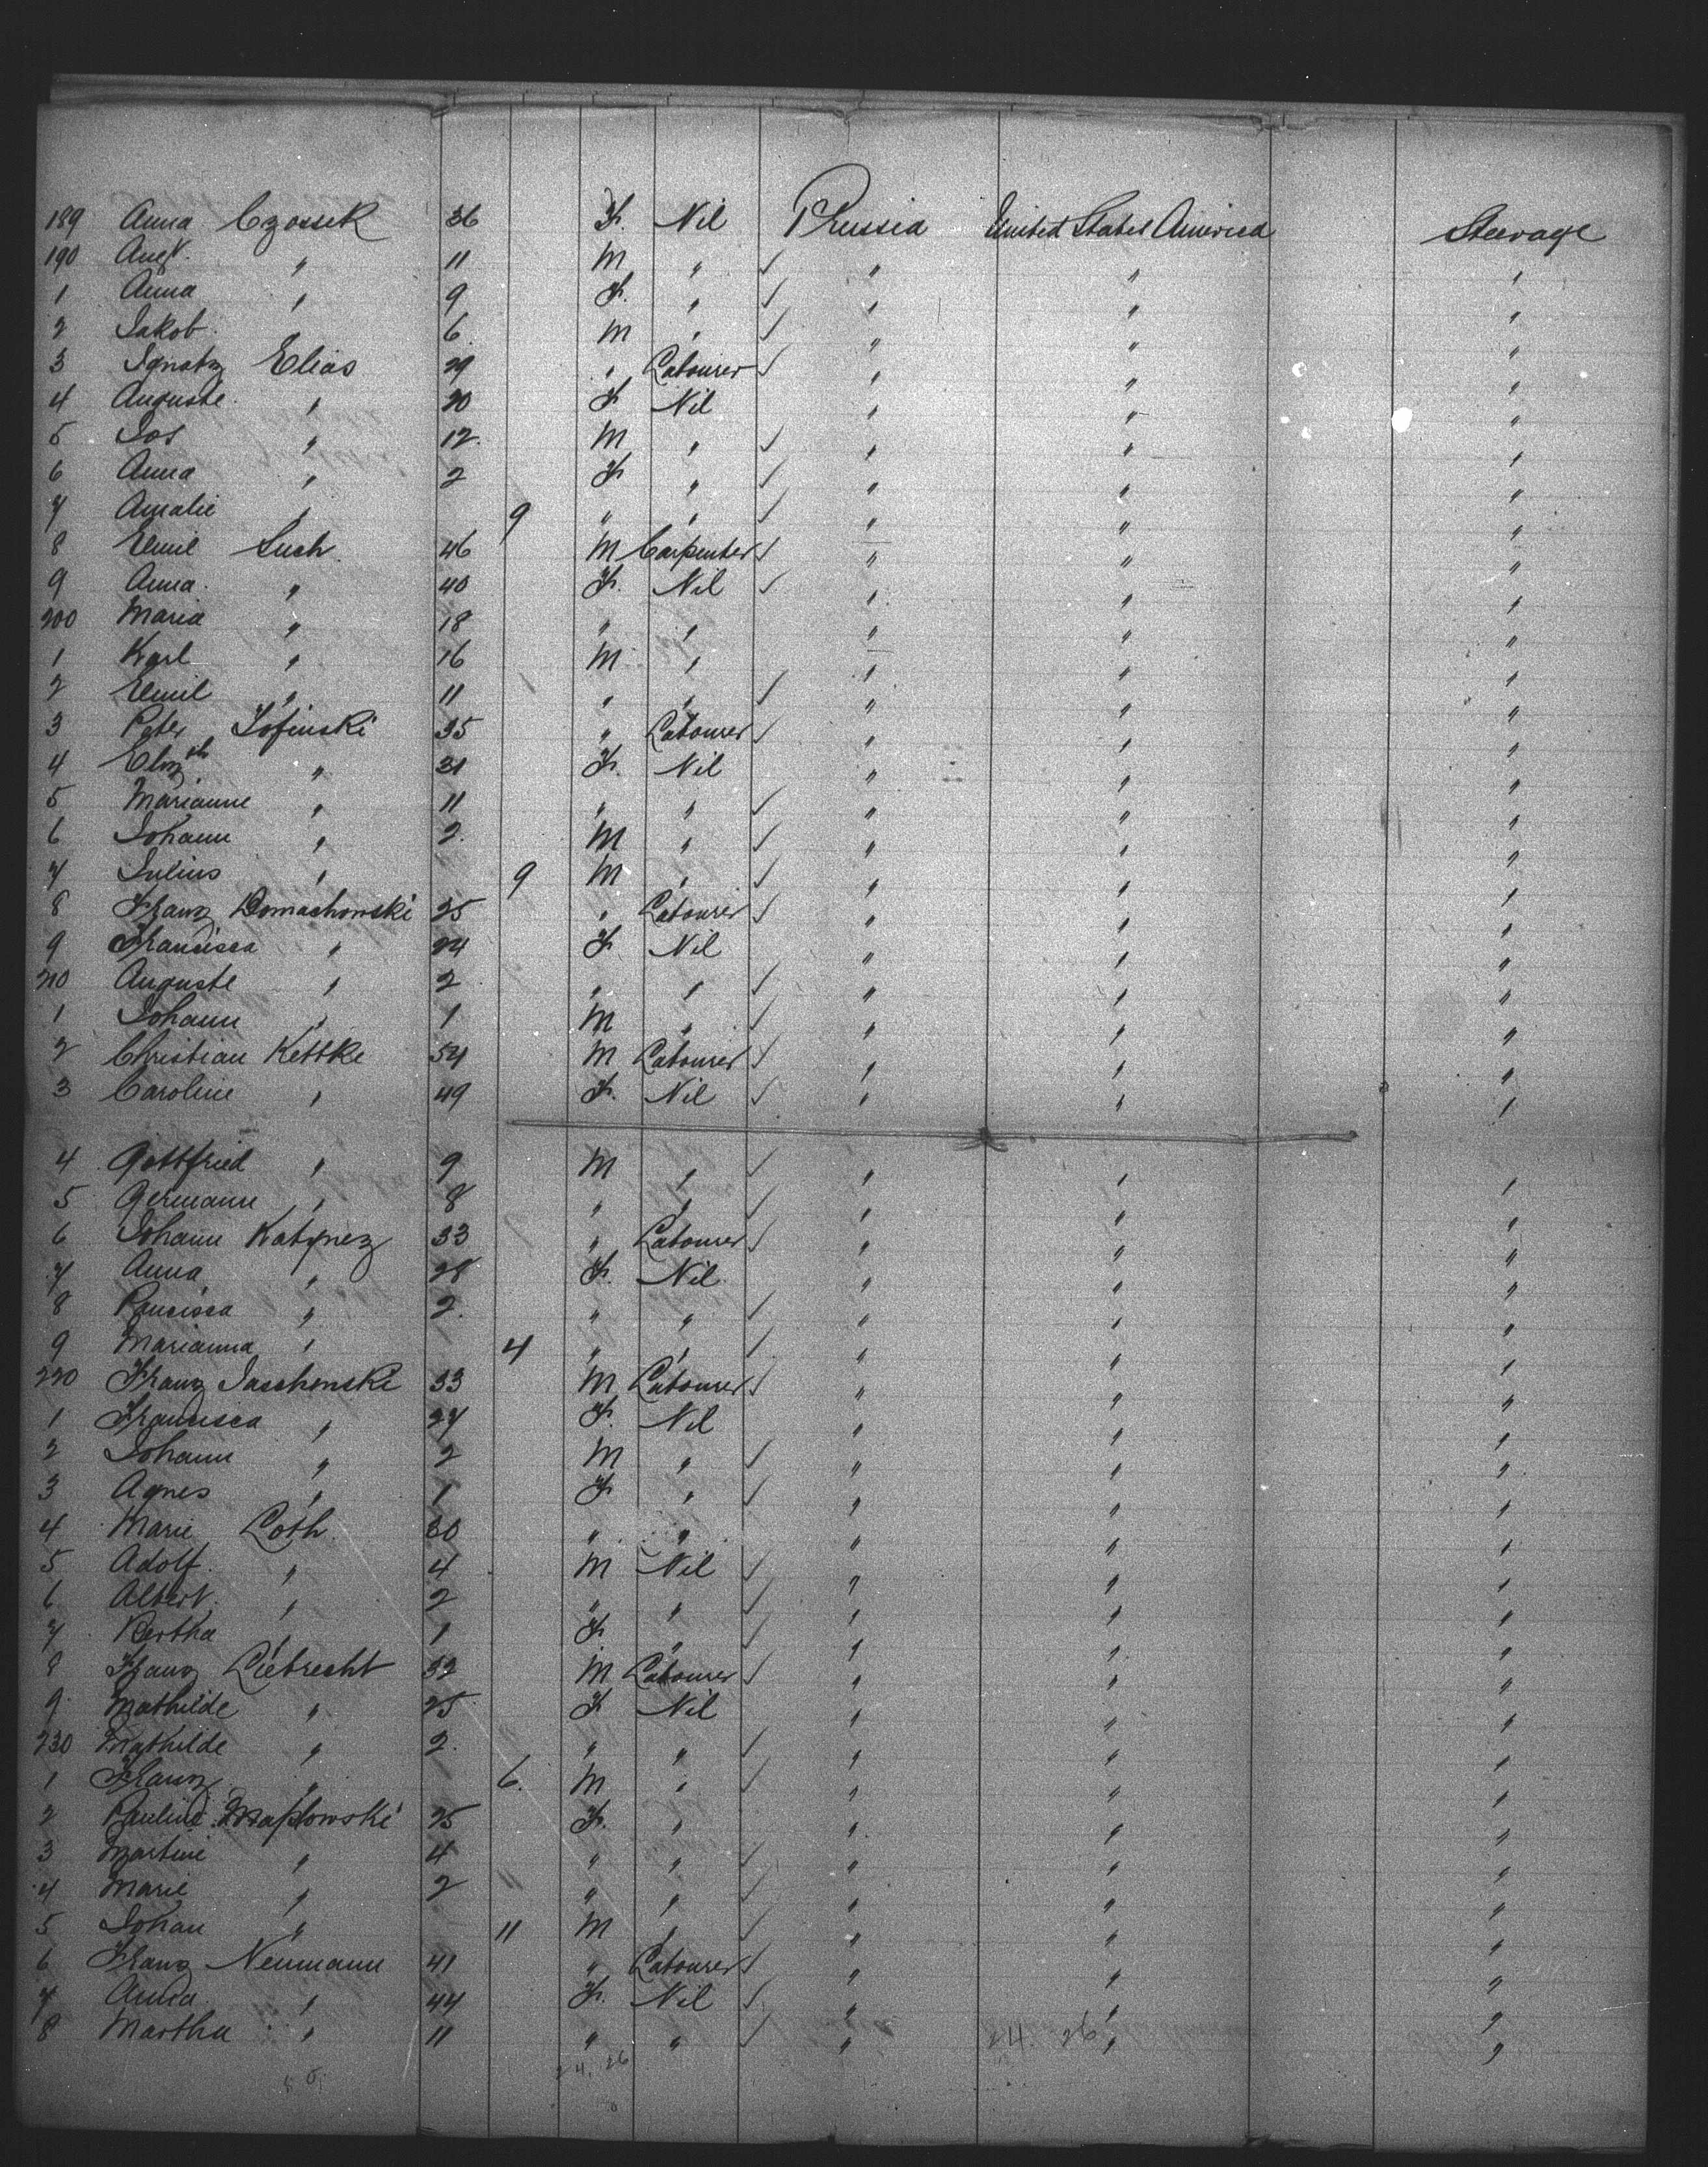 189 Anna Czossek 36 F. Nil Prussia United States America Steerage
190 Aug. " 11 M " " " "
1 Anna " 9 F. " " " "
2 Jakob 6 M " " " "
3 Ignatz Elias 29 " Labourer " " "
4 Auguste " 20 F Nil " " "
5 Jos " 12. M " " " "
6 Anna " 2 F " " " "
7 Amalie " 9 " " " " "
8 Emil Such 46 M Carpenter " " "
9 Anna " 40 F. Nil " " "
200 Maria " 18 " " " " "
1 Karl " 16 M " " " "
2 Emil " 11 " " " " "
3 Peter 35 " Labourer " " "
4 " 31 F. Nil " " "
5 Marianne " 11 " " " " "
6 Johann " 2. M " " " "
7 Julius " 9 M " " " "
8 Franz Domachowski 25 " Labourer " " "
9 Francisca " 24 F Nil " " "
210 Auguste " 2 " " " " "
1 Johann " 1 M " " " "
2 Christian Kettke 54 M Labourer " " "
3 Caroline " 49 F. Nil " " "
4 Gottfried " 9 M " " " "
5 Germann " 8 " " " " "
6 Johann 33 " Labourer " " "
7 Anna " 28 F. Nil " " "
8 " 2. " " " " "
9 Marianna " 4 " " " " "
220 Franz Jaschenski 33 M Labourer " " "
1 Francisca " 27 F. Nil " " "
2 Johann " 2 M " " " "
3 Agnes " 1 F " " " "
4 Marie Loth 30 " " " " "
5 Adolf " 4 M Nil " " "
6 Albert " 2 " " " " "
7 Bertha " 1 F " " " "
8 Franz Liebrecht 32 M Labourer " " "
9 Mathilde " 25 F Nil " " "
230 Mathilde " 2. " " " " "
1 Franz " 6. M " " " "
2 Pauline 25 F. " " " "
3 Martine " 4 " " " " "
4 Marie " 2 " " " " "
5 Johan " 11 M " " " "
6 Franz Neumann 41 " Labourer " " "
7 Anna " 44 F. Nil " " "
8 Martha " 11 " " " " "
24. 26
24. 26